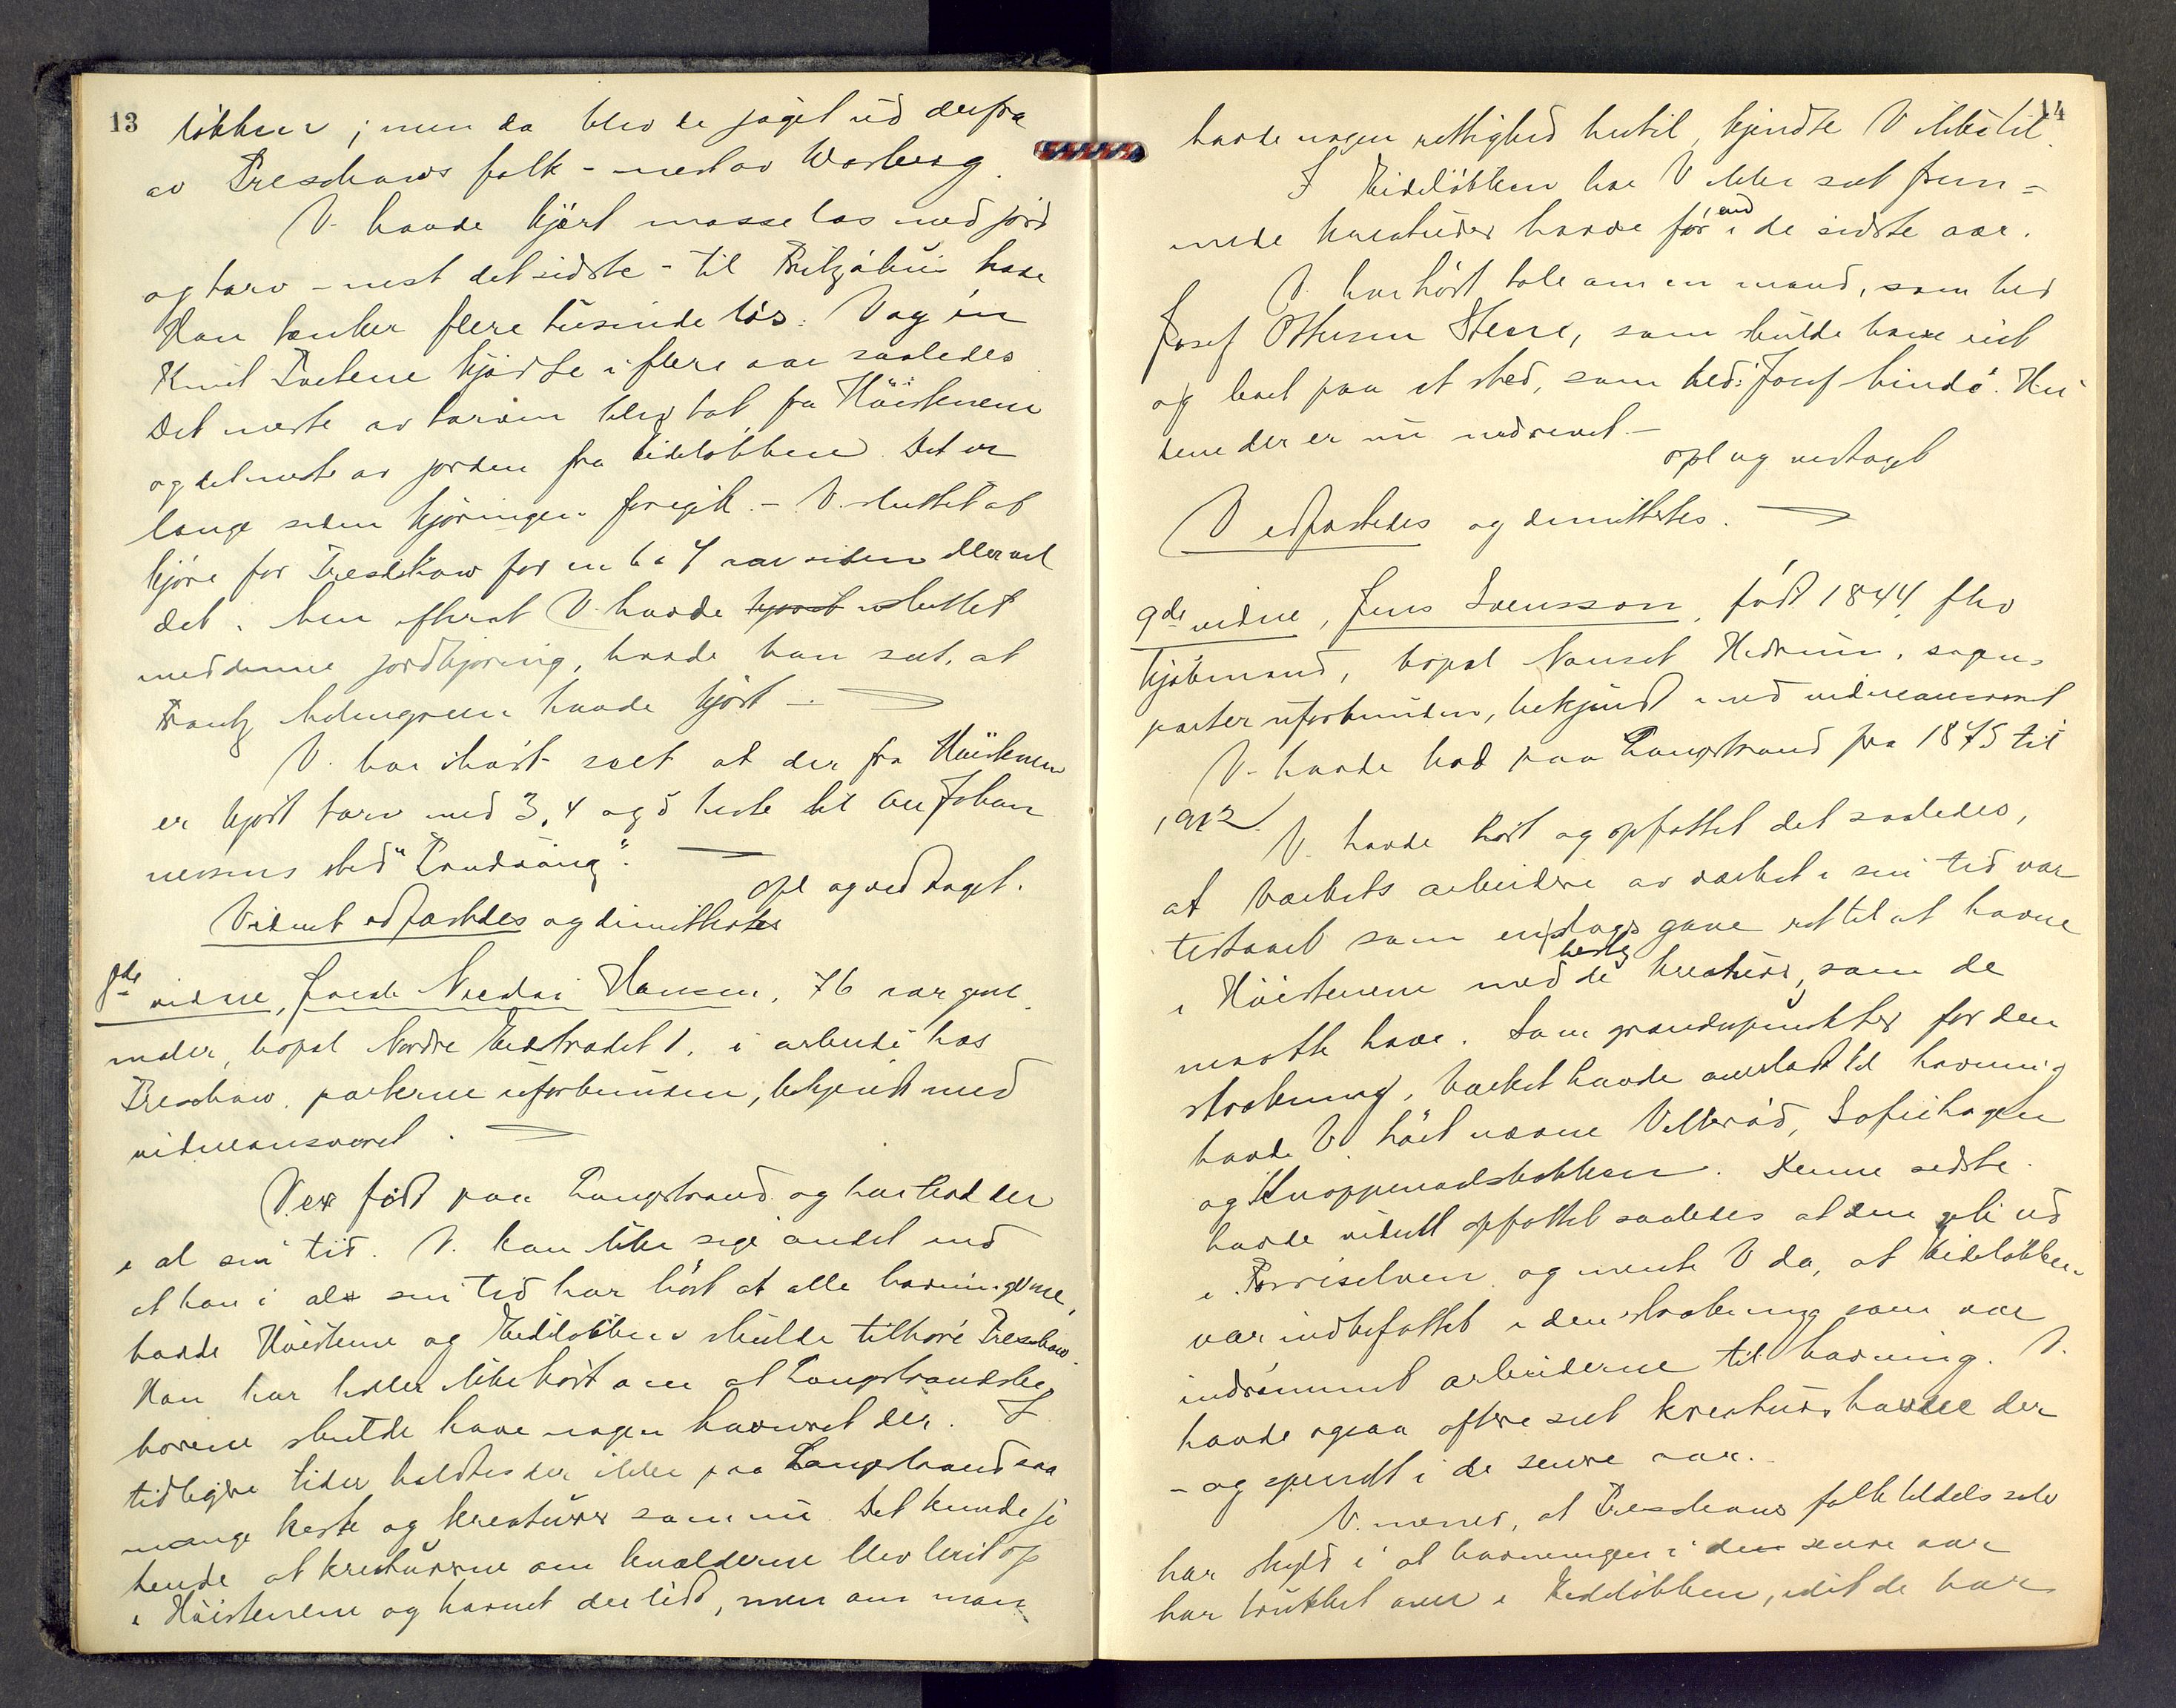 13
løkken; men da blev de jaget ud derfra
av Treschows folk – mest av Warberg.
V. havde kjørt masse las med jord
og tarv – mest det sidste – til Fritzøhus have
Han tænker flere tusinde læs. V og en
Knut Tvetene kjørte i flere aar saaledes
Det meste av tarven blev tat fra Høistenene
og det meste av jorden fra Eideløkken. Det er
længe siden kjøringen foregik. – V. sluttet at
kjøre for Treschow for en 6 a 7 aar siden eller vel
det. Men efterat V. havde kjørt sluttet
med denne jordkjøring, havde han set, at
Frantz Holmgreen havde kjørt –
V. har ihøst seet at der fra Høistenene
er kjørt tarv med 3, 4 og 5 heste til Johan
nessens sted "Trudvang".
Opl og vedtaget.
Vidnet edfæstedes og dimitteredes
8de vidne, Jacob Nicolai Hansen, 76 aar gml
maler, bopæl Nordre Langstrand 1, i arbeide hos
Treschow. parterne uforbunden, bekjendt med
vidneansvaret.
V. er født paa Langestrand og har bod der
i al sin tid. V. kan ikke sige andet end
at han i al sin tid har hørt at alle havningerne,
baade Høistenene og Eideløkken skulde tilhøre Treschow.
Han har heller ikke hørt om at Langestrandsbe
boerne skulde have nogen havneret der. I
tidligere tider holdtes der ikke paa Langestrand saa
mange heste og kreaturer som nu. Det kunde jo
hende at kreaturerne om kvælderne blev leiet op
i Høistenene og havnet der lidt, men om man
14
havde nogen rettighed hertil, kjendte V ikke til.
I Eideløkken har V ikke set frem=
mede kreaturer havne før end i de sidste aar.
V. har hørt tale om en mand, som hed
Josef Ottersen Steene, som skulde have eiet
og boet paa et sted, som hed: "Josef Lindø". Hu
sene der er nu nedrevet. –
opl og vedtaget
V edfæstedes og dimitteredes.
9de vidne, Jens Svensson, født 1844, fhv
kjøbmand, bopæl Nanset Hedrum, sagens
parter uforbunden, bekjendt med vidneansvaret
V. havde bod paa Langestrand fra 1875 til
1912.
V. havde hørt og opfattet det saaledes,
at Værkets arbeidere av værket i sin tid var
tilstaaet som en slags gave ret til at havne
i Høistenene med de heste kreaturer, som de
maatte have. Som grændsepunkter for den
strækning, Værket havde anvist til havning
havde V. hørt nævne Vetterød, Sofiehagen
og Knoppenadsbækken. Denne sidste
havde vidnet opfattet saaledes at den gik ud
i Farriselven og mente V da, at Eideløkken
var indbefattet i den strækning som var
indrømmet arbeiderne til havning. V.
havde ogsaa oftere set kreaturer havne der
– og specielt i de senere aar.
V. mener, at Treschows folk tildels selv
har skyld i at havningen i de senere aar
har trukket over i Eideløkken, idet de har